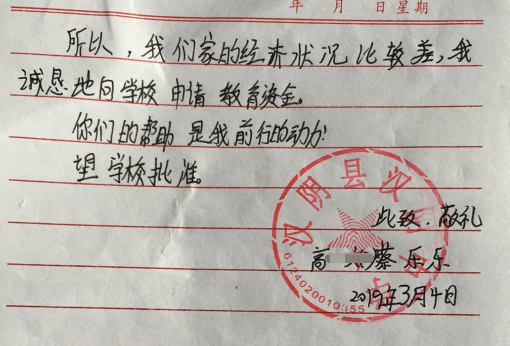 年 月 日星期
所以，我们家的经济状况比较差，我
诚恳地向学校申请教育资金。
你们的帮助是我前行的动力!
望学校批准。
此致.敬礼
高 蔡乐乐
2019年3月4日
汉阴县汉
6124020010355